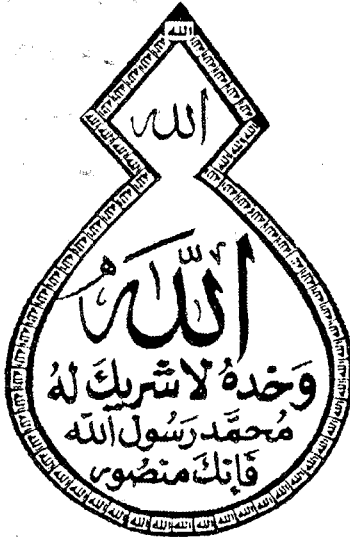 الله
الله
الله
وَحْدَهُ لَا شَرِيكَ لَهُ
مُحَمَّد رَسُول الله
فَإِنَّكَ مَنْصُور